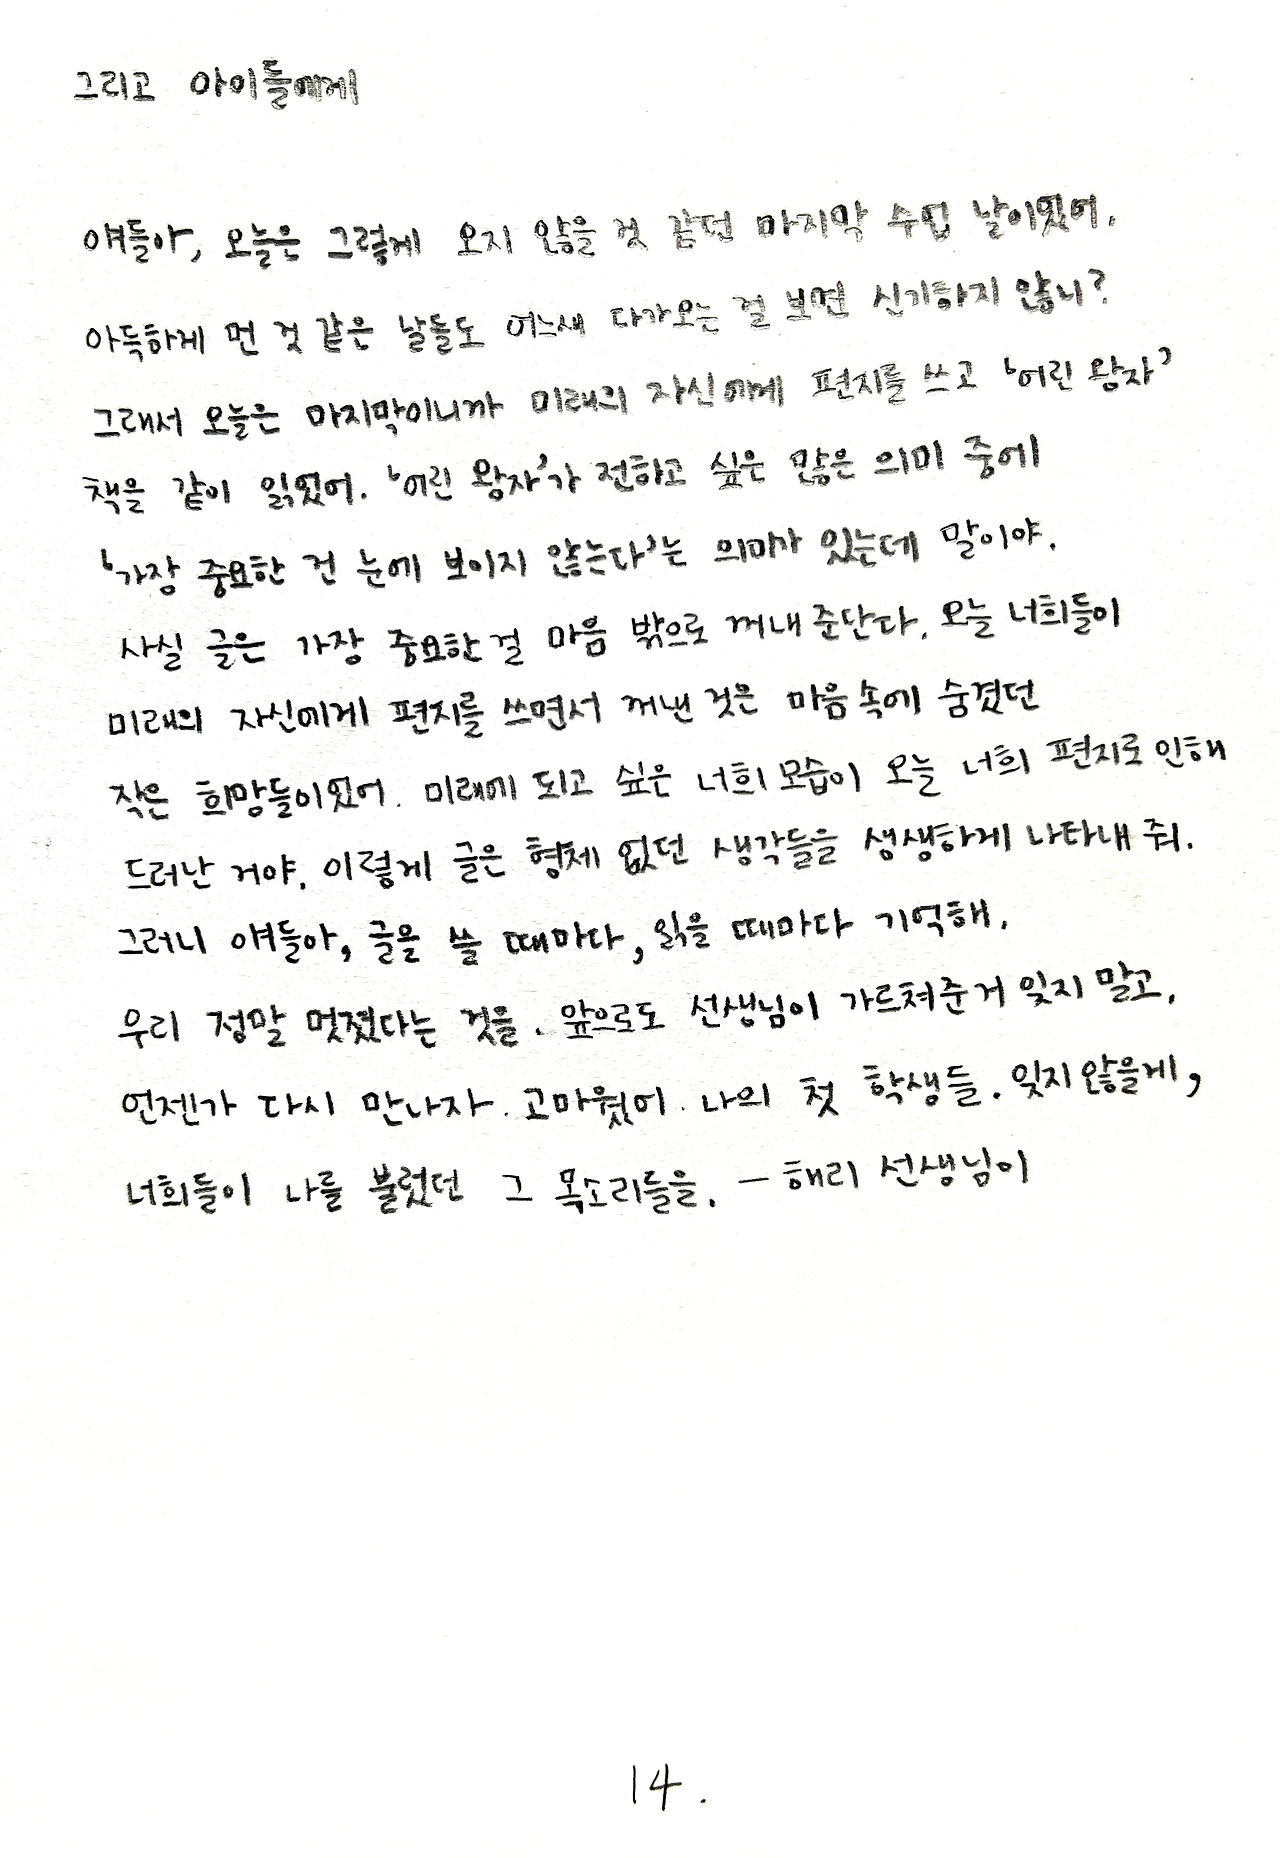 그리고 아이들에게
얘들아, 오늘은 그렇게 오지 않을 것 같던 마지막 수업 날이었어.
아득하게 먼 것 같은 날들도 어느새 다가오는 걸 보면 신기하지 않니?
그래서 오늘은 마지막이니까 미래의 자신에게 편지를 쓰고 '어린 왕자'
책을 같이 읽었어. '어린 왕자'가 전하고 싶은 많은 의미 중에
'가장 중요한 건 눈에 보이지 않는다'는 의미가 있는데 말이야.
사실 글은 가장 중요한 걸 마음 밖으로 꺼내 준단다. 오늘 너희들이
미래의 자신에게 편지를 쓰면서 꺼낸 것은 마음 속에 숨겼던
작은 희망들이었어. 미래에 되고 싶은 너희 모습이 오늘 너희 편지로 인해
드러난 거야. 이렇게 글은 형체 없던 생각들을 생생하게 나타내 줘.
그러니 얘들아, 글을 쓸 때마다, 읽을 때마다 기억해.
우리 정말 멋졌다는 것을. 앞으로도 선생님이 가르쳐준거 잊지 말고,
언젠가 다시 만나자. 고마웠어. 나의 첫 학생들. 잊지 않을게,
너희들이 나를 불렀던 그 목소리들을. - 해리 선생님이
14.